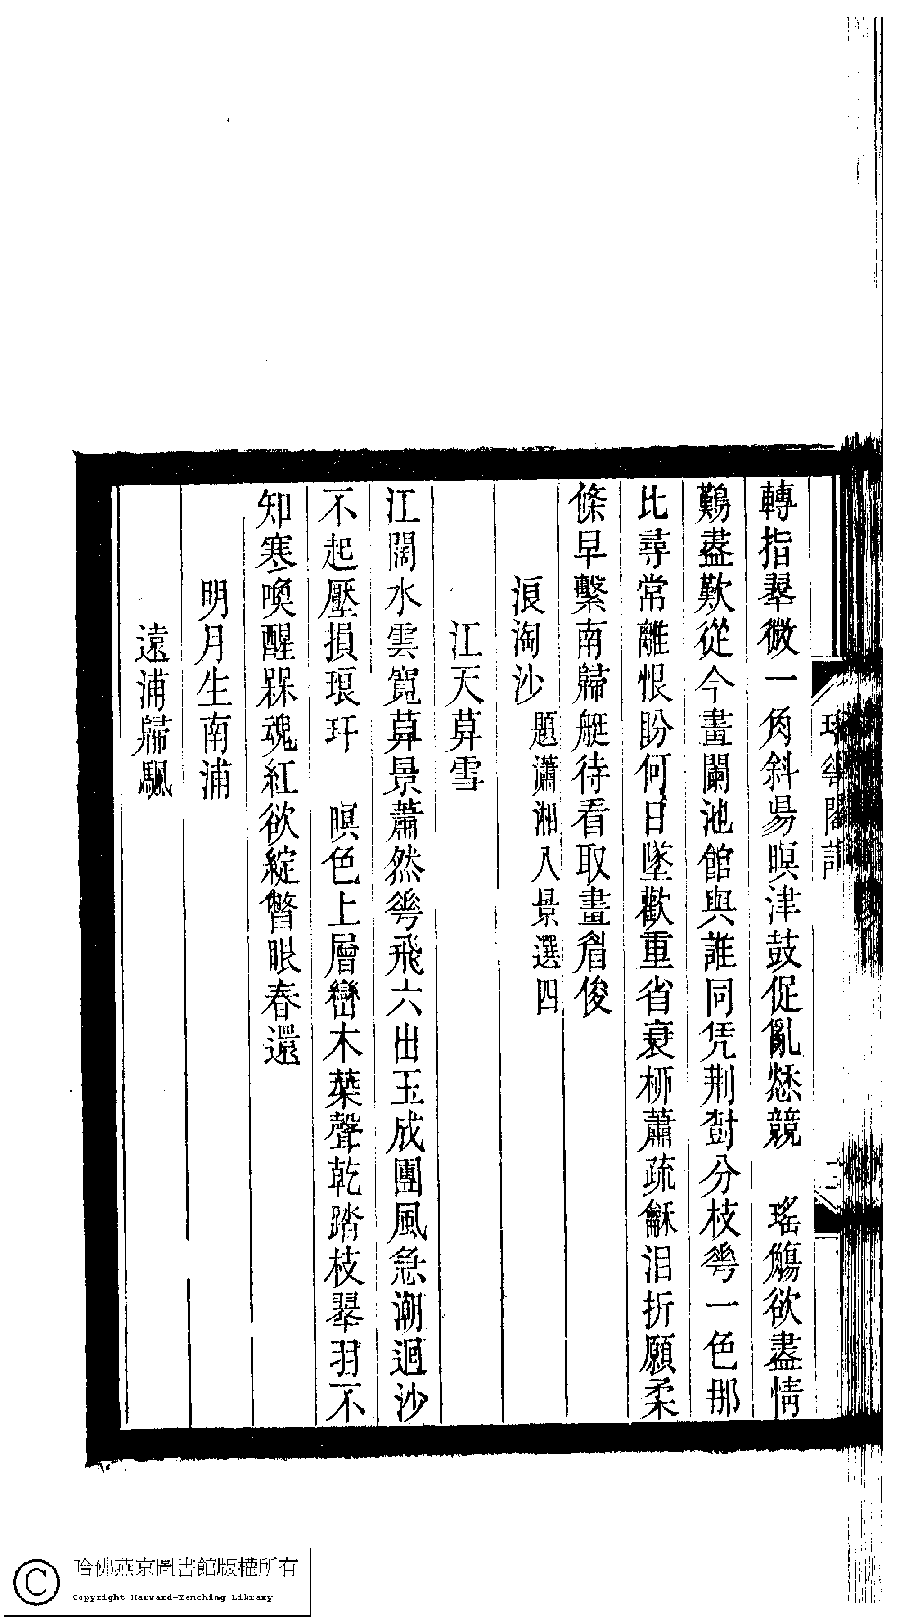 轉指翠微一角斜昜暝津鼓促亂愁競　瑤觴欲盡情
鷬盡歎從今畫闌池館與誰同凭荆樹分枝蕚一色那
比尋常離恨盼何日墜歡重省衰栁蕭疏龢泪折願柔
條早繫南歸艇待看取畫眉俊
浪淘沙　題瀟湘八景選四
江天算雪
江闊水雲寬算景蕭然蕚飛六出玉成團風急潮迴沙
不起壓損琅玕　暝色上層巒木葉聲乾踏枝翠羽不
知寒喚醒槑魂紅欲綻瞥眼春還
明月生南浦
遠浦歸颿
哈佛燕京圖書館版權所有
Copyright Harvard-Yenching Library